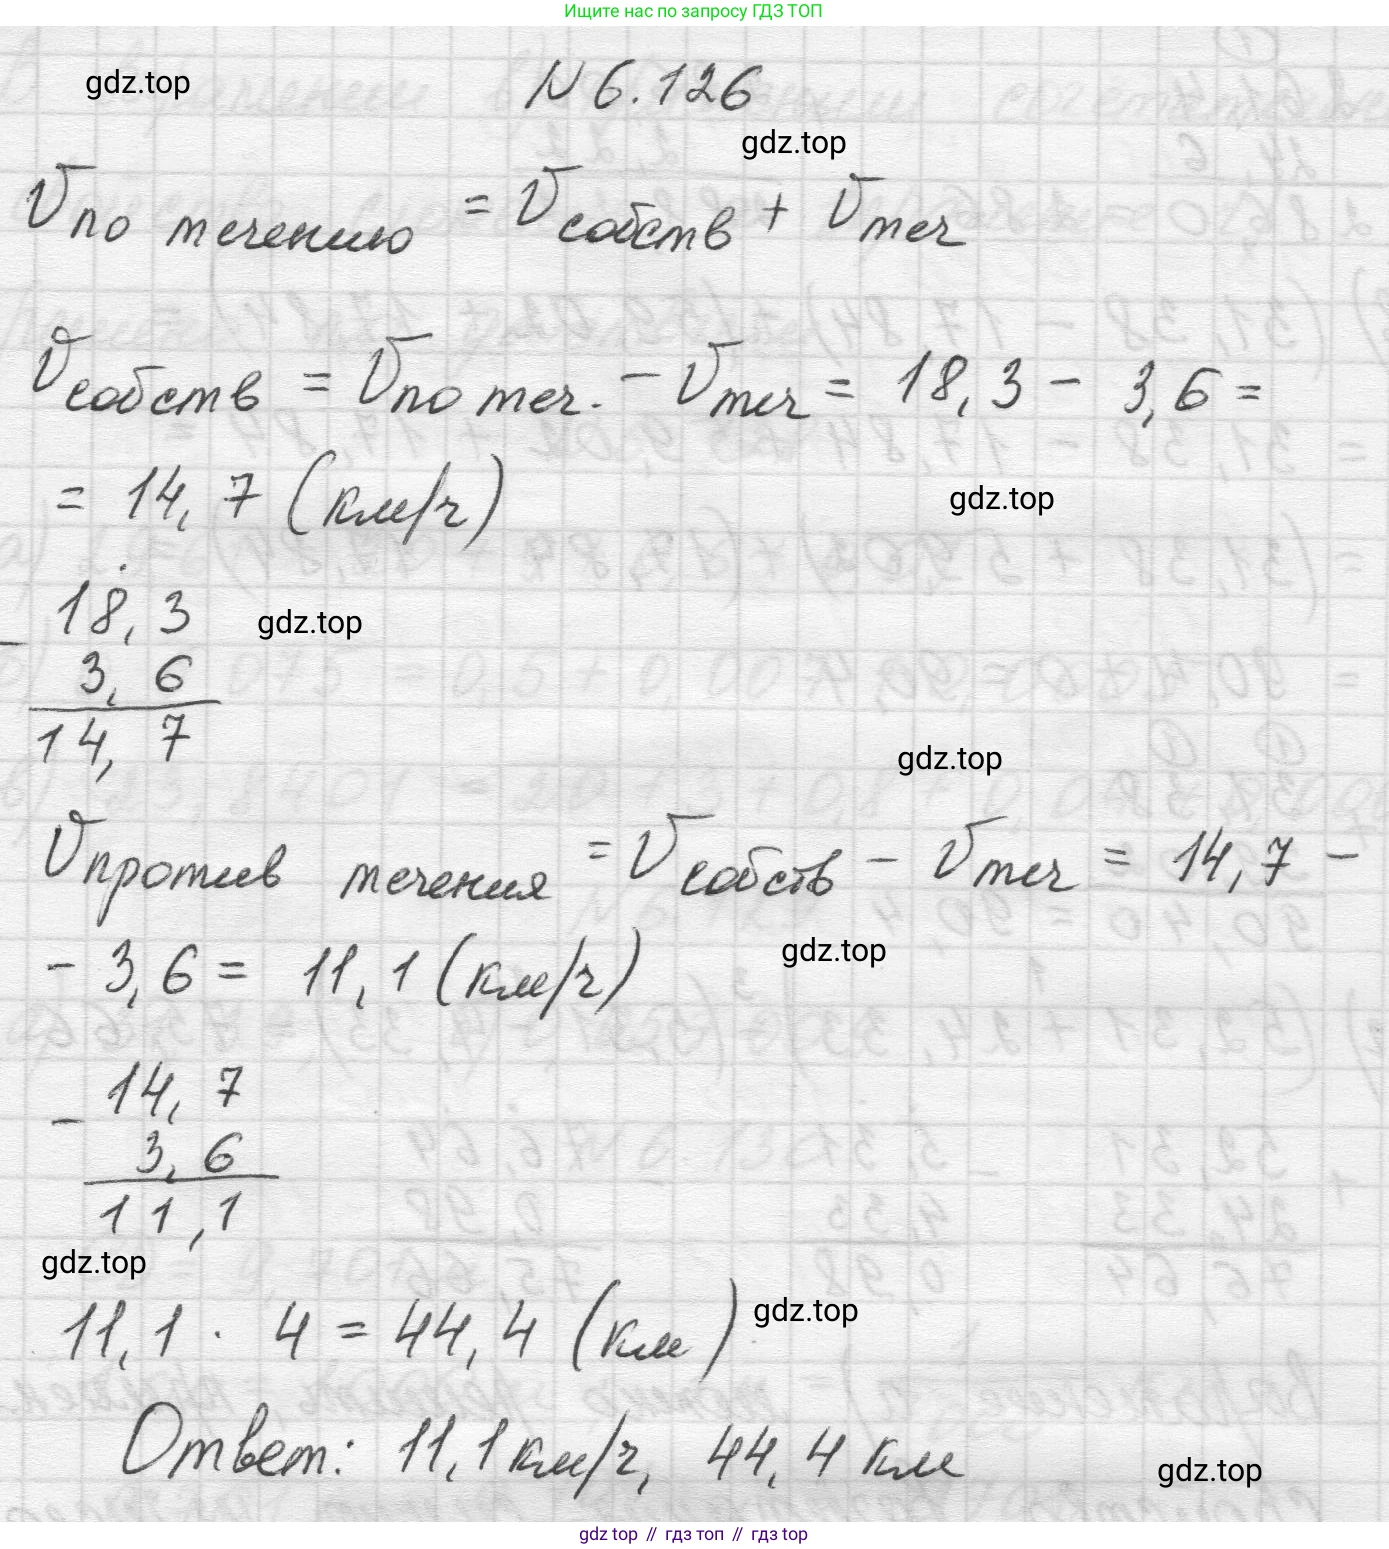 Ищите нас по запросу ГДЗ ТОП
gdz.top
N 6.126
gdz.top
Vпо течению = Vсобств + Vтеч
Vсобств = Vпо теч. - Vтеч = 18,3 - 3,6 =
= 14,7 (км/ч)
gdz.top
18,3
gdz.top
- 3,6
14,7
gdz.top
Vпротив течения = Vсобств - Vтеч = 14,7 -
- 3,6 = 11,1 (км/ч)
gdz.top
14,7
- 3,6
11,1
gdz.top
11,1 · 4 = 44,4 (км)
gdz.top
Ответ: 11,1 км/ч, 44,4 км
gdz.top
gdz top // гдз топ // гдз top